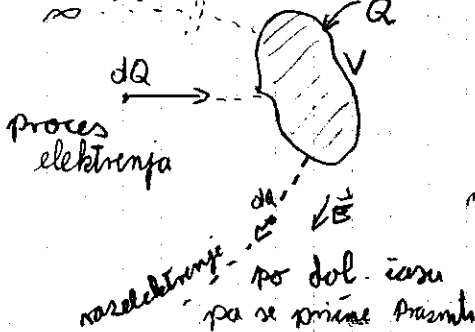 ∞
Q
dQ
V
proces
elektrenja
dQ
E⃗
razelektrenje
po dol. času
pa se prične